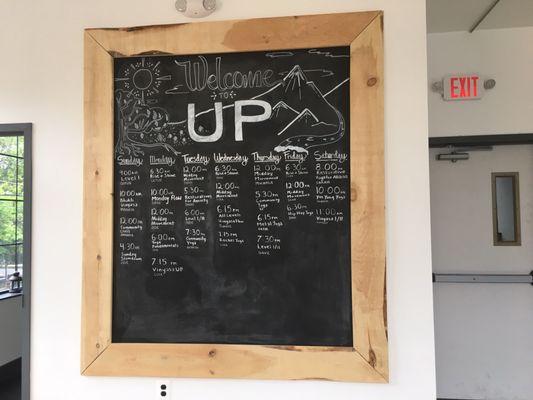 Welcome
TO
UP
EXIT
Sunday
9:00 AM
Level 1
10:00 AM
Bhakti
Vinyasa
12:00 PM
Community
4:30 PM
Sunday
Slowdown
Monday
6:30 AM
Rise + Shine
10:00 AM
Monday Flow
12:00 PM
Midday
Movement
6:00 PM
Yoga
Fundamentals
7:15 PM
Vinyasa UP
Tuesday
12:00 PM
Midday
Movement
5:30 PM
Restorative
for Anxiety
6:00 PM
Level I/II
7:30 PM
Community
Yoga
Wednesday
6:30 AM
Rise + Shine
12:00 PM
Midday
Movement
6:15 PM
All Levels
Vinyasa Flow
7:15 PM
Rocket Yoga
Thursday
12:00 PM
Midday
Movement
5:30 PM
Community
Yoga
6:15 PM
Metal Yoga
7:30 PM
Level I/II
Friday
6:30 AM
Rise + Shine
12:00 PM
Midday
Movement
6:30 PM
Hip Hop Yoga
Saturday
8:00 AM
Restorative
10:00 AM
Yin Yang Yoga
11:00 AM
Vinyasa I/II